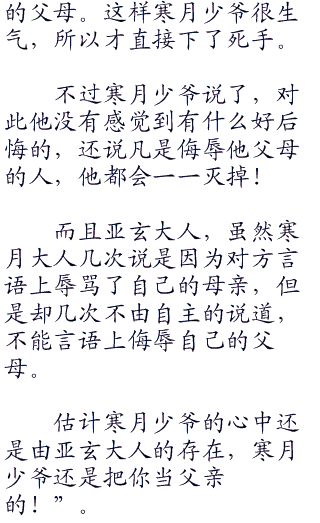 的父母。这样寒月少爷很生
气，所以才直接下了死手。
不过寒月少爷说了，对
此他没有感觉到有什么好后
悔的，还说凡是侮辱他父母
的人，他都会一一灭掉！
而且亚玄大人，虽然寒
月大人几次说是因为对方言
语上辱骂了自己的母亲，但
是却几次不由自主的说道，
不能言语上侮辱自己的父
母。
估计寒月少爷的心中还
是由亚玄大人的存在，寒月
少爷还是把你当父亲
的！”。